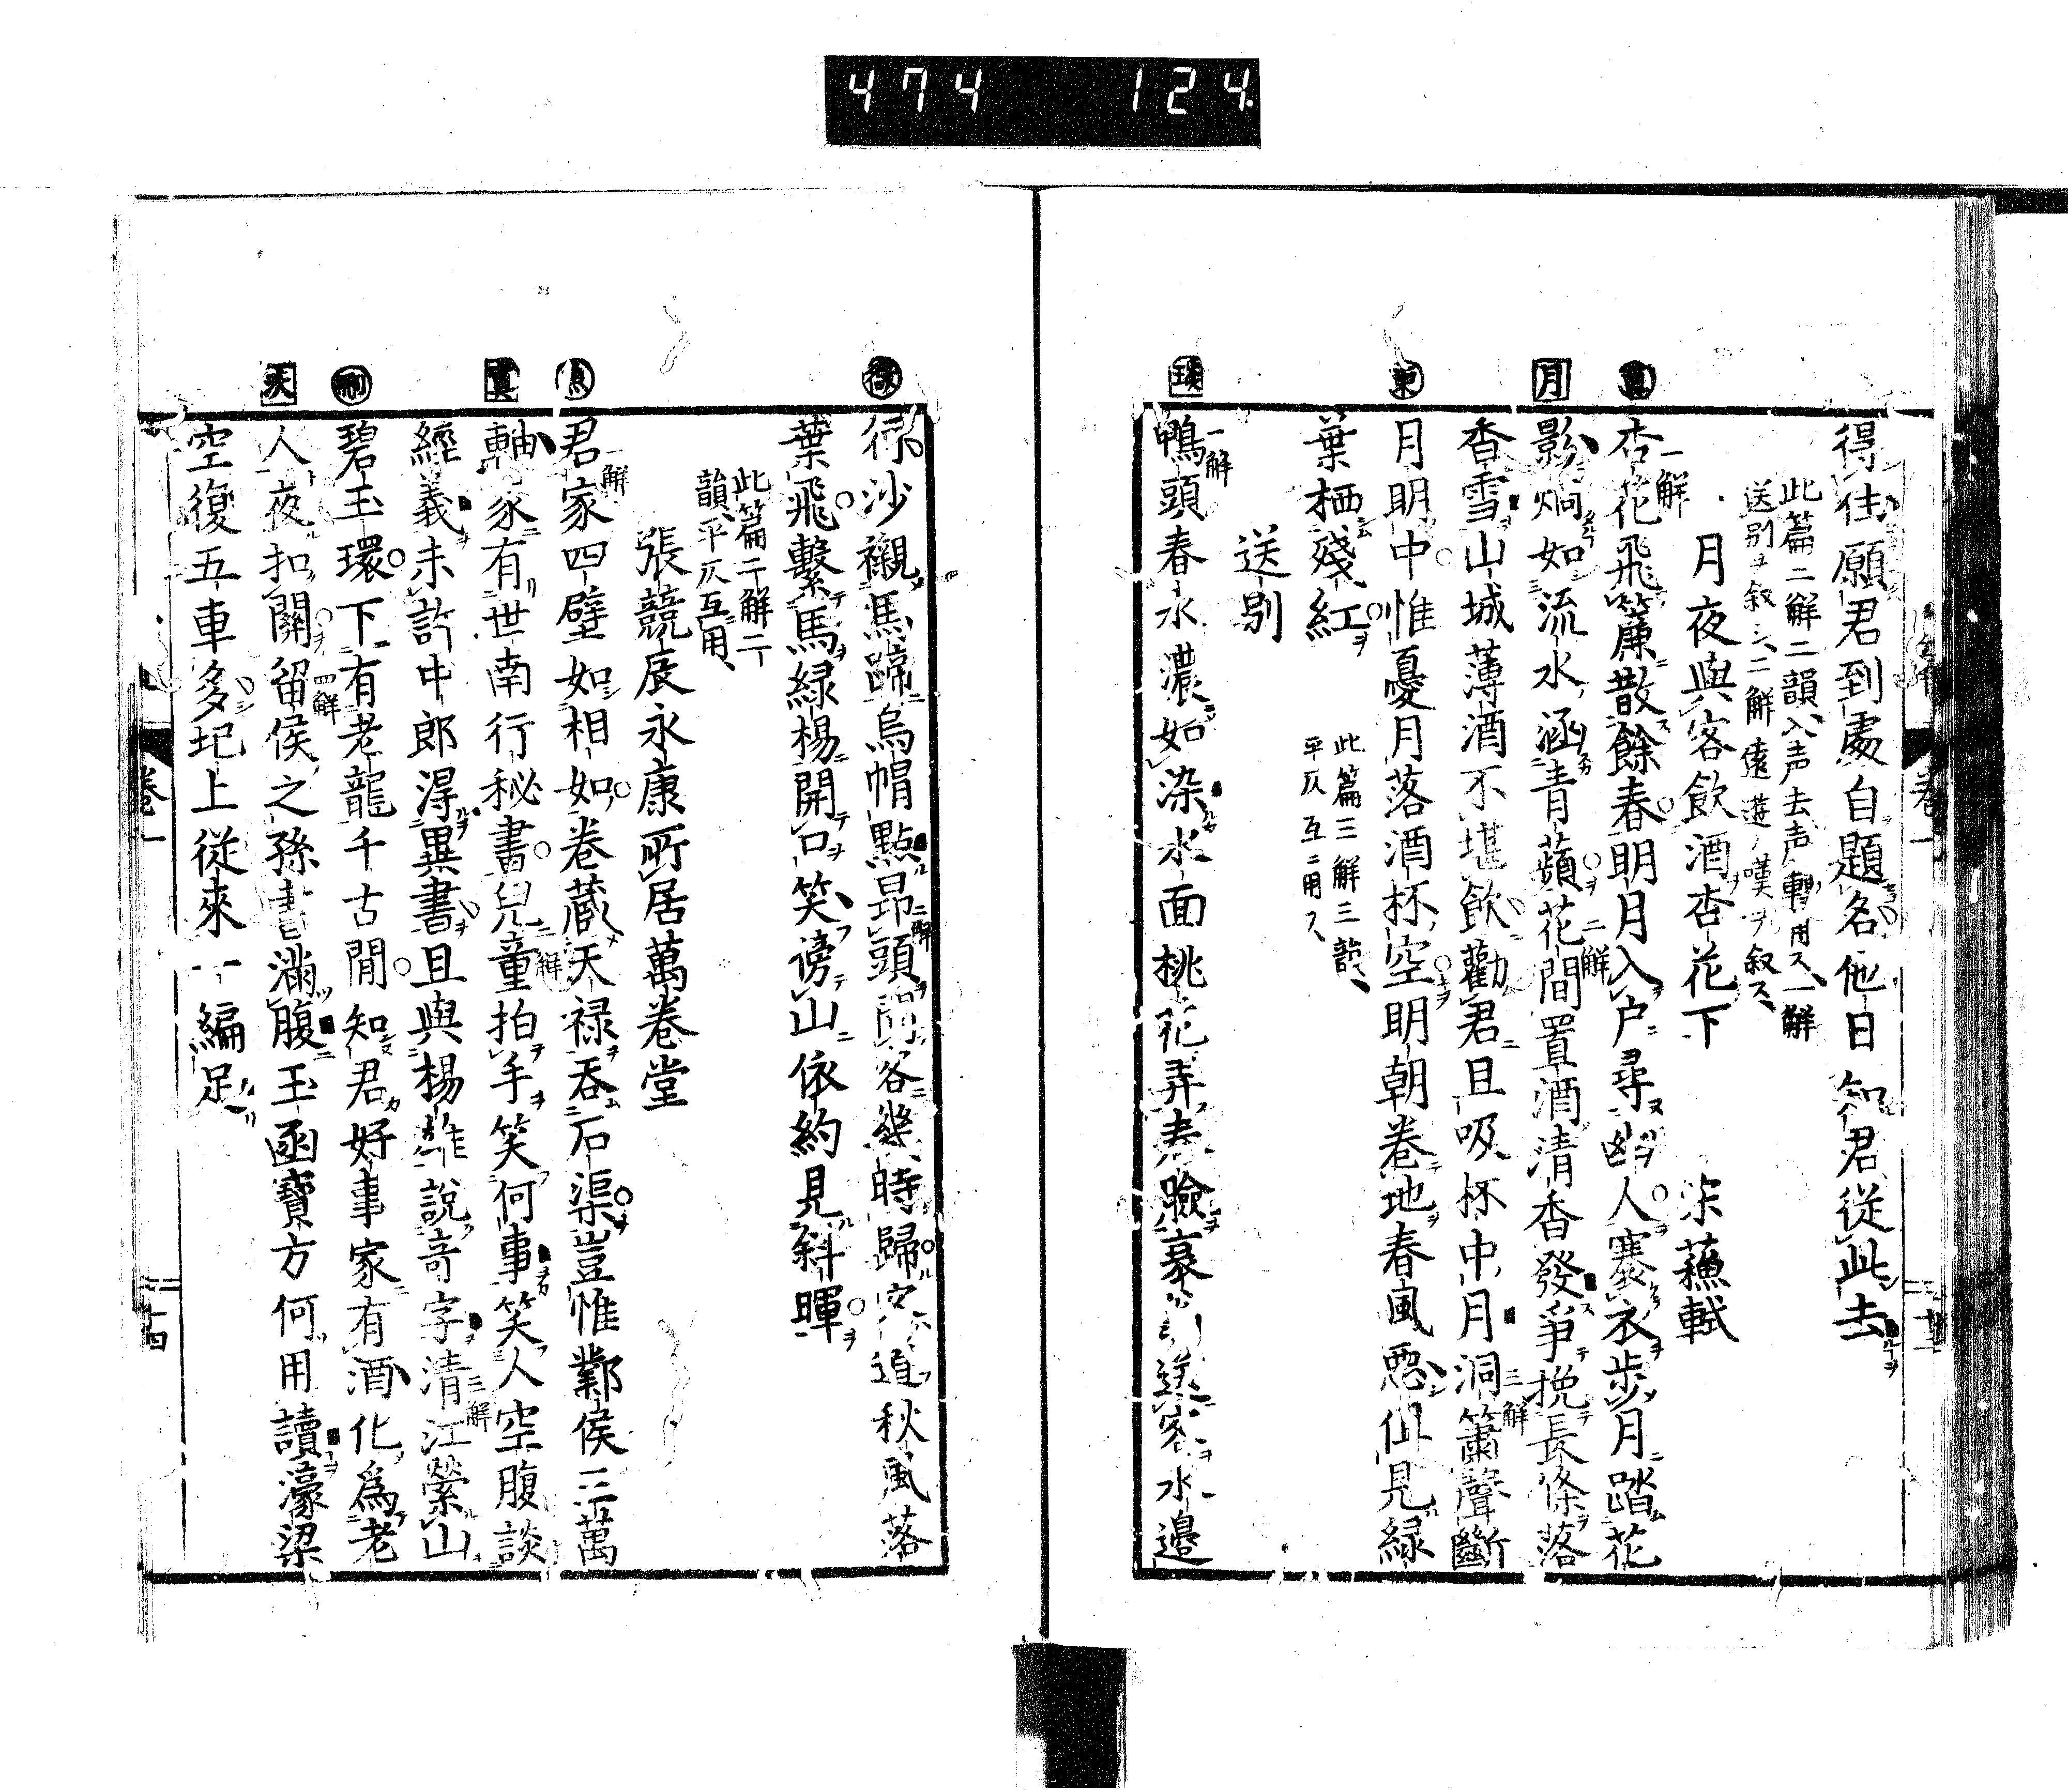 474 124.
得住願君到處自題名他日知君從此去
此篇二解二韻入声去声轉用ス、一解
送別ヲ叙シ、二解遠遊ノ嘆ヲ叙ス、
月夜與客飲酒杏花下 宋蘇軾
一解
杏花飛簾散餘春明月入戶尋幽人褰衣步月踏花
影炯如流水涵青蘋二解花間置酒清香發爭挽長條落
香雪山城薄酒不堪飲勸君且吸杯中月三解洞簫聲斷
月明中惟憂月落酒杯空明朝卷地春風惡但見綠
葉栖殘紅
此篇三解三韵、
平仄互ニ用ス、
送別
一解
鴨頭春水濃如染水面桃花弄春臉衰 送客水邊
行沙襯馬蹄烏帽點昂二解頭 客幾時歸 道秋風落
葉飛繫馬綠楊開口笑傍山依約見斜暉
此篇二解二
韻平仄互用、
張競辰永康所居萬卷堂
一解
君家四壁如相如卷藏天祿吞石渠豈惟鄴侯三萬
軸家有世南行秘書二解兒童拍手笑何事笑人空腹談
經義未許中郎得異書且與楊雄說奇字三解清江縈山
碧玉環下有老龍千古閒知君好事家有酒化爲老
人夜扣關四解留侯之孫書滿腹玉函寶方何用讀濠梁
空復五車多圯上從來一編足
卷一
十四
月
東
虞
刪